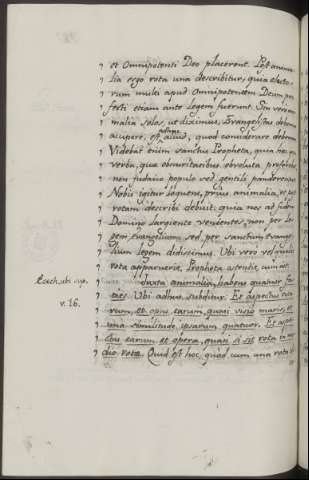 et Omnipotenti Deo placerent. Post anima
lia ergo rota una describitur, quia electo
rum multi apud Omnipotentem Deum per
fecti etiam ante legem fuerunt. Sin vero ani
malia solos, ut diximus, Evangelistas debemus
accipere, est aliud, quod considerare debeamus
adhuc
Videbat enim sanctus Propheta, quia haec
verba, quae obscuritatibus obvoluta proferebat
non Judaico populo sed gentili panderentur
Nobis igitur loquens, prius animalia, et post
rotam describi debuit, quia nos ad fidem
Domino largiente venientes, non per le
gem Evangelium sed per sanctum Evange
lium legem didicimus. Ubi vero vel qualis
rota apparuerit, Propheta ostendit, cum ait:
Juxta animalia, habens quatuor fa
cies. Ubi adhuc subditur. Et aspectus rota
rum, et opus earum, quasi visio maris, et
una similitudo ipsarum quatuor. Et aspe
ctus earum et opera, quasi si sit rota in me
dio rotae. Quid est hoc, quod cum una rota
Ezech. ubi sup.
v. 16.